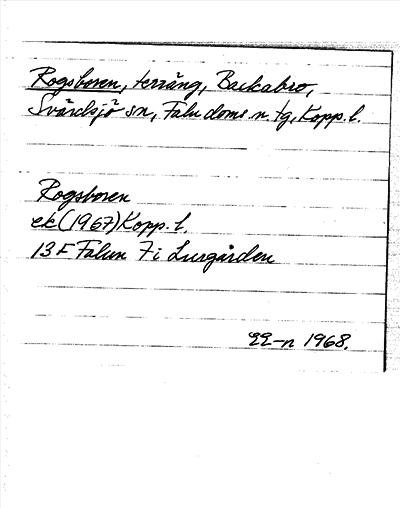 Rogsboren, terräng, Backabro,
Svärdsjö sn, Falu doms.n. tg, Kopp. l.
Rogsboren
ek (1967) Kopp. l.
13 F Falun 7i Lurgården
1968.